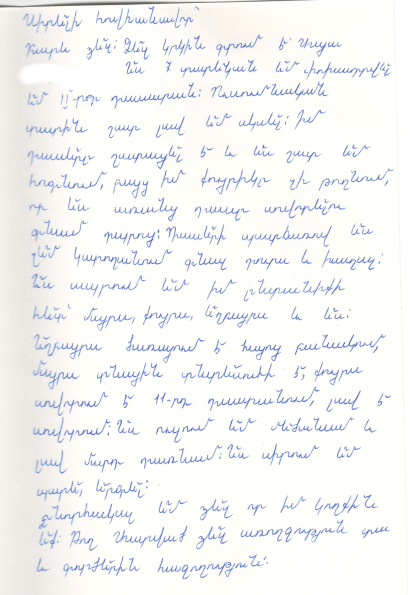 Սիրելի հովհանավոր՝
Բարև ձեզ։ Ձեզ կրկին գրում է Արա
Ես 7 տարեկան եմ փոխադրվել
եմ II-րդ դասարան։ Ուսումնական
տարին շատ լավ եմ սկսել։ Իմ
դասերը շատացել է և ես շատ եմ
հոգնում, բայց իմ քույրիկը չի թողնում,
որ ես առանց դասը սովորելու
գնամ դպրոց։ Դասերի պատճառով ես
չեմ կարողանում գնալ դուրս և խաղալ։
Ես ապրում եմ իմ ընտանիքի
հետ՝ մայրս, քույրս, եղբայրս և ես։
Եղբայրս ծառայում է հայոց բանակում,
մայրս տնային տնտեսուհի է, քույրս
սովորում է 11-րդ դասարանում, լավ է
սովորում։ Ես ուզում եմ մեծանամ և
լավ մարդ դառնամ։ Ես սիրում եմ
պարել, երգել։
Շնորհակալ եմ ձեզ որ իմ կողքին
եք։ Թող Աստված ձեզ առողջություն տա
և գործերին հաջողություն։